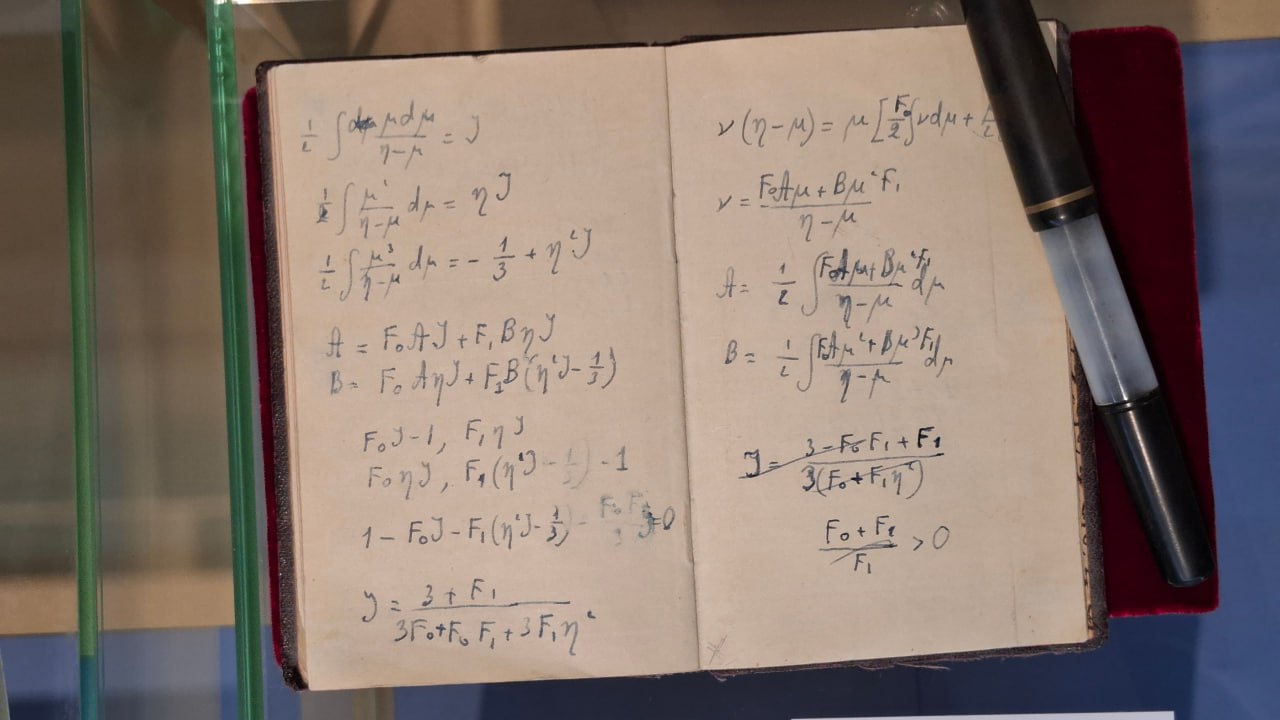 ½ ∫ μdμ / (η-μ) = J
½ ∫ μ² / (η-μ) dμ = ηJ
½ ∫ μ³ / (η-μ) dμ = - 1/3 + η²J
A = F₀AJ + F₁BηJ
B = F₀AηJ + F₁B(η²J - 1/3)
F₀J-1, F₁ηJ
F₀ηJ, F₁(η²J - 1/3) - 1
1 - F₀J - F₁(η²J - 1/3) - F₀F₁/3 J = 0
J = (3 + F₁) / (3F₀ + F₀F₁ + 3F₁η²)
ν(η-μ) = μ[F₀/2 ∫νdμ +
ν = (F₀Aμ + Bμ²F₁) / (η-μ)
A = ½ ∫ (F₀Aμ + Bμ²F₁) / (η-μ) dμ
B = ½ ∫ (F₀Aμ² + Bμ³F₁) / (η-μ) dμ
J = (3 - F₀F₁ + F₁) / 3(F₀ + F₁η²)
(F₀ + F₁) / F₁ > 0